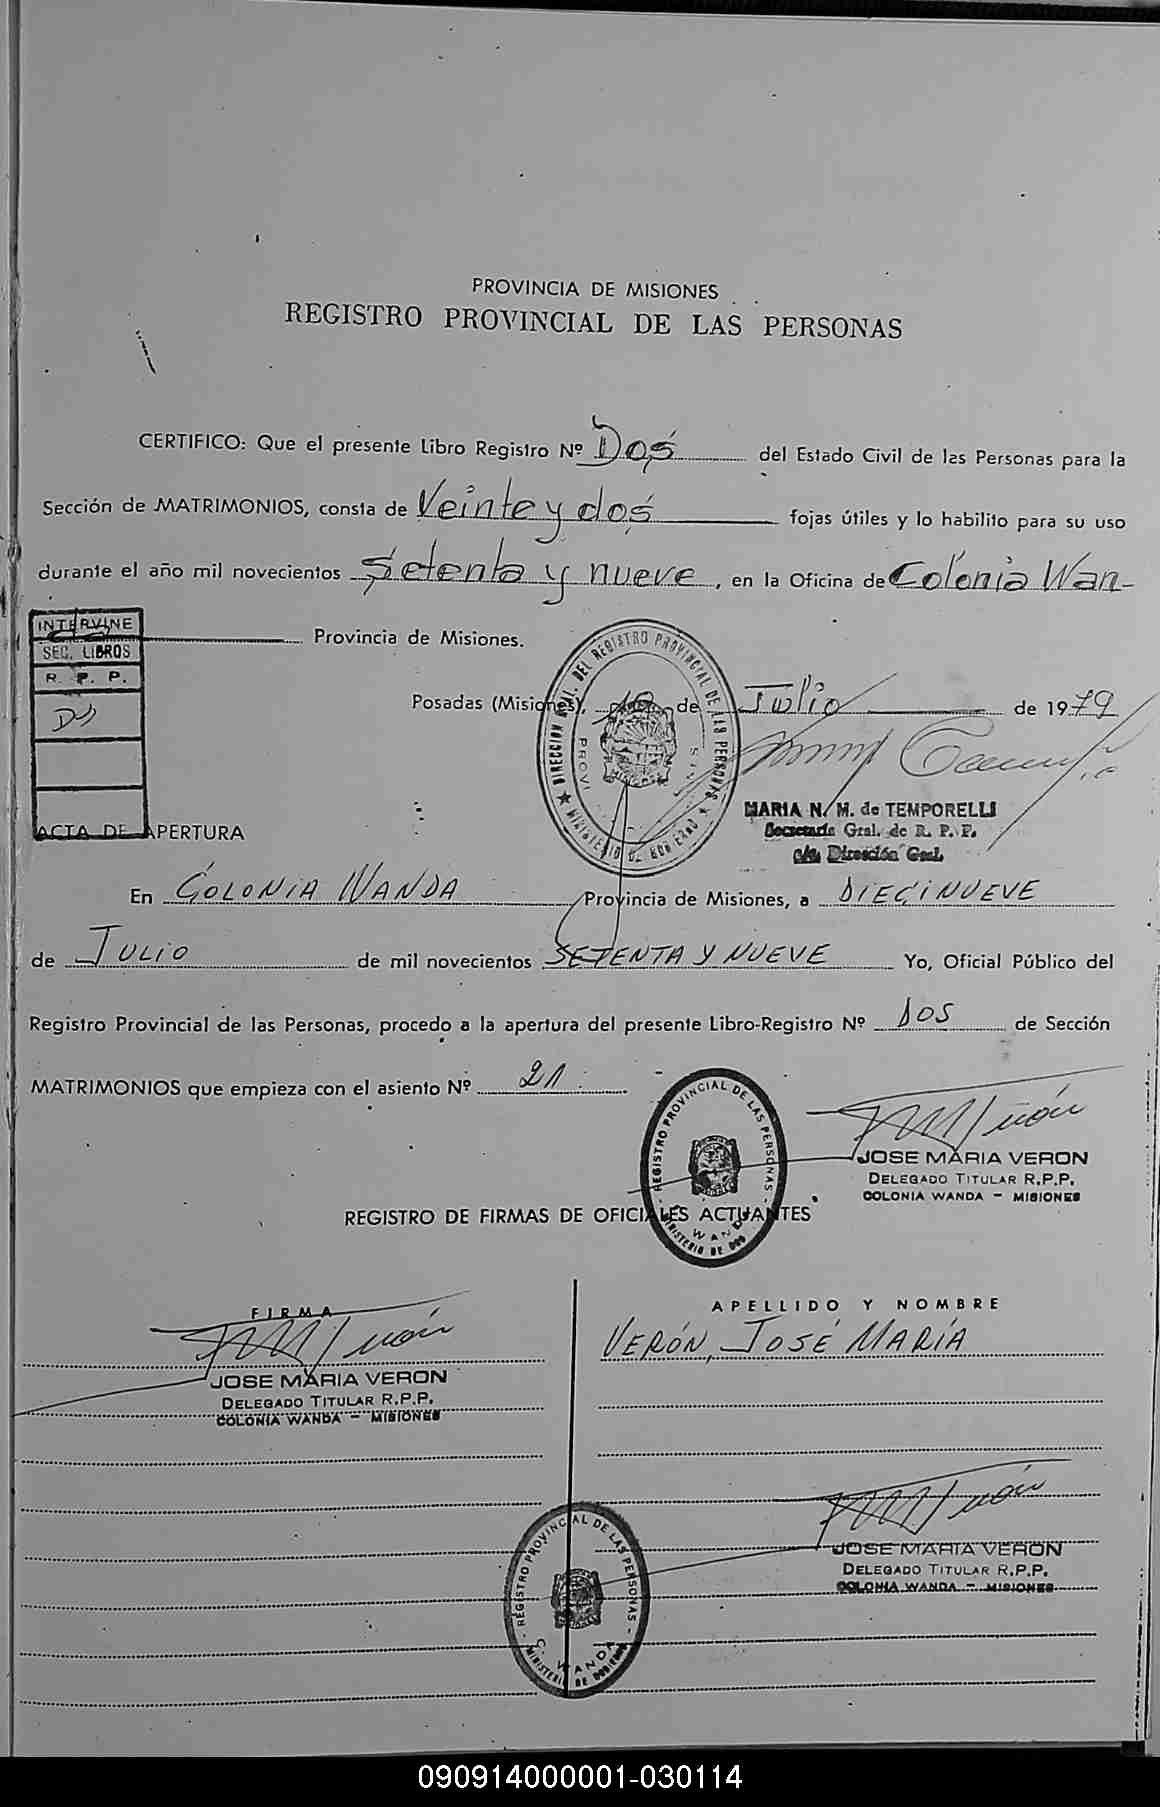 PROVINCIA DE MISIONES
REGISTRO PROVINCIAL DE LAS PERSONAS
CERTIFICO: Que el presente Libro Registro Nº Dos del Estado Civil de las Personas para la
Sección de MATRIMONIOS, consta de Veinte y dos fojas útiles y lo habilito para su uso
durante el año mil novecientos Setenta y nueve, en la Oficina de Colonia Wan-
da Provincia de Misiones.
INTERVINE
SEC. LIBROS
R. P. P.
Posadas (Misiones), 10 de Julio de 1979
DIRECCION GRAL. DEL REGISTRO PROVINCIAL DE LAS PERSONAS
MINISTERIO DE GOBIERNO
MARIA N. M. de TEMPORELLI
Secretaria Gral. de R. P. P.
a/c. Dirección Gral.
ACTA DE APERTURA
En COLONIA WANDA Provincia de Misiones, a DIECINUEVE
de JULIO de mil novecientos SETENTA Y NUEVE Yo, Oficial Público del
Registro Provincial de las Personas, procedo a la apertura del presente Libro-Registro Nº DOS de Sección
MATRIMONIOS que empieza con el asiento Nº 21.
REGISTRO PROVINCIAL DE LAS PERSONAS
C. WANDA
MINISTERIO DE GOB
JOSE MARIA VERON
DELEGADO TITULAR R.P.P.
COLONIA WANDA - MISIONES
REGISTRO DE FIRMAS DE OFICIALES ACTUANTES
FIRMA
APELLIDO Y NOMBRE
VERÓN, JOSÉ MARÍA
JOSE MARIA VERON
DELEGADO TITULAR R.P.P.
COLONIA WANDA - MISIONES
REGISTRO PROVINCIAL DE LAS PERSONAS
C. WANDA
MINISTERIO DE GOBIERNO
JOSE MARIA VERON
DELEGADO TITULAR R.P.P.
COLONIA WANDA - MISIONES
090914000001-030114